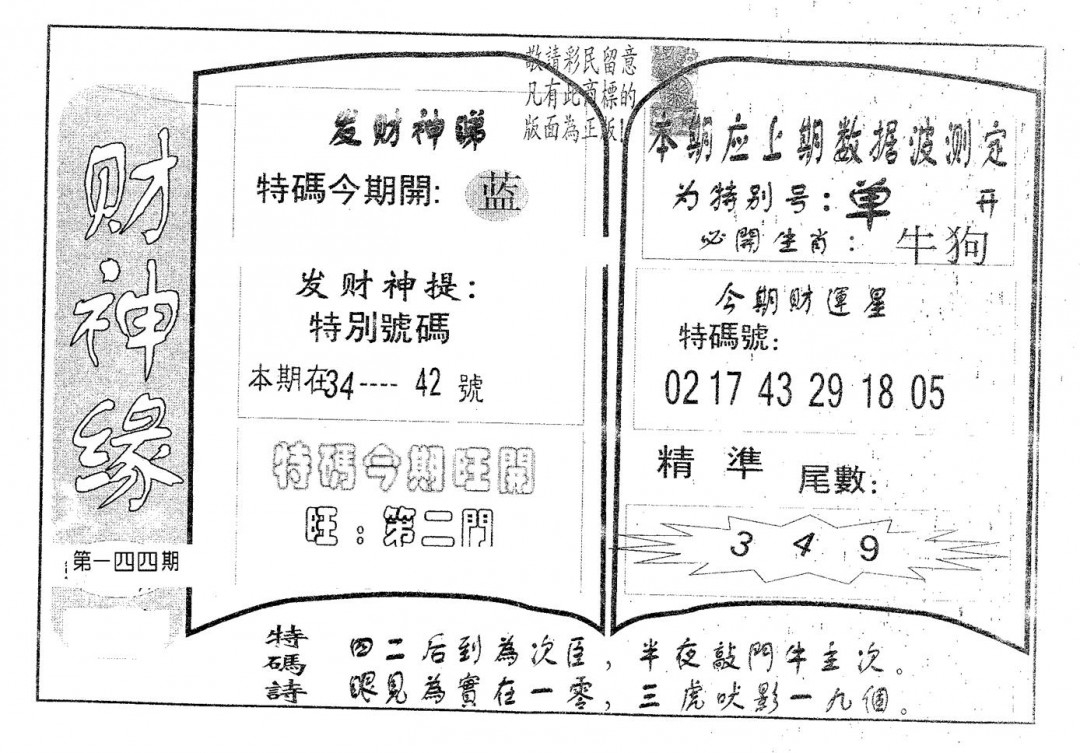 财神缘
第一四四期
敬請彩民留意
凡有此商標的
版面為正版!
发财神睇
特碼今期開: 蓝
发财神提:
特別號碼
本期在34---- 42 號
特碼今期旺開
旺:第二門
本期应上期数据波测定
为特别号:单 开
必開生肖: 牛狗
今期財運星
特碼號:
02 17 43 29 18 05
精準 尾數:
3 4 9
特碼詩
四二后到為次臣,半夜敲門牛主次。
眼見為實在一零,三虎吠影一九個。